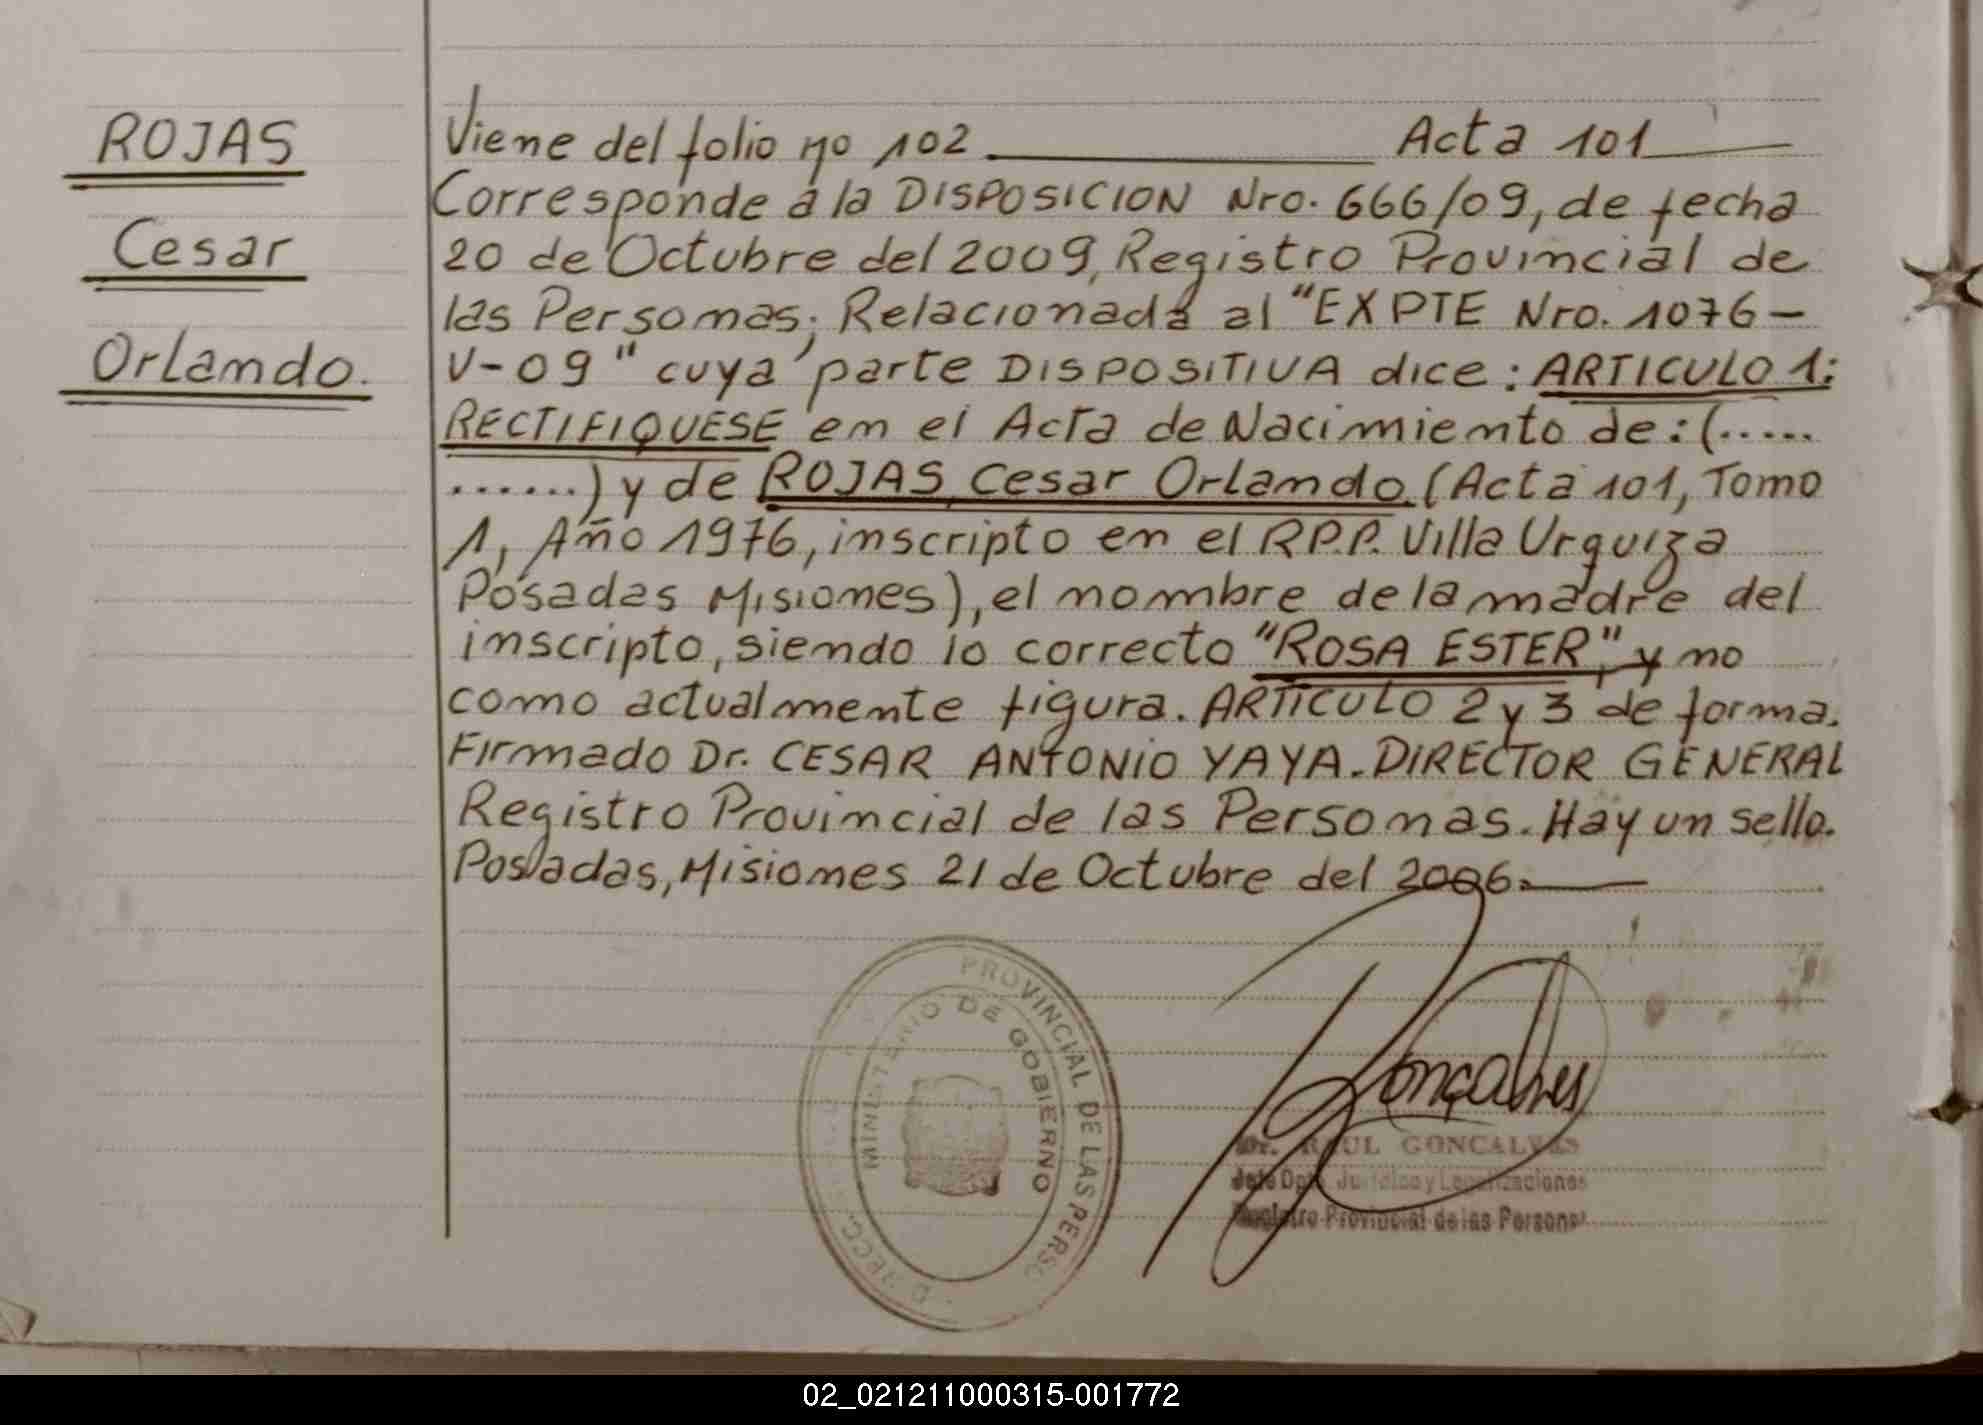 ROJAS
Cesar
Orlando.
Viene del folio no 102 Acta 101
Corresponde a la DISPOSICION Nro. 666/09, de fecha
20 de Octubre del 2009, Registro Provincial de
las Personas; Relacionada al "EXPTE Nro. 1076-
V-09" cuya parte DISPOSITIVA dice: ARTICULO 1:
RECTIFIQUESE en el Acta de Nacimiento de: (.....
.......) y de ROJAS, Cesar Orlando. (Acta 101, Tomo
1, Año 1976, inscripto en el R.P.P. Villa Urquiza
Posadas Misiones), el nombre de la madre del
inscripto, siendo lo correcto "ROSA ESTER", y no
como actualmente figura. ARTICULO 2 y 3 de forma.
Firmado Dr. CESAR ANTONIO YAYA. DIRECTOR GENERAL
Registro Provincial de las Personas. Hay un sello.
Posadas, Misiones 21 de Octubre del 2006.
PROVINCIAL DE LAS PERSO
MINISTERIO DE GOBIERNO
Goncalves
Dr. RAUL GONCALVES
Jefe Dpto. Juridico y Legalizaciones
Registro Provincial de las Personas
02_021211000315-001772